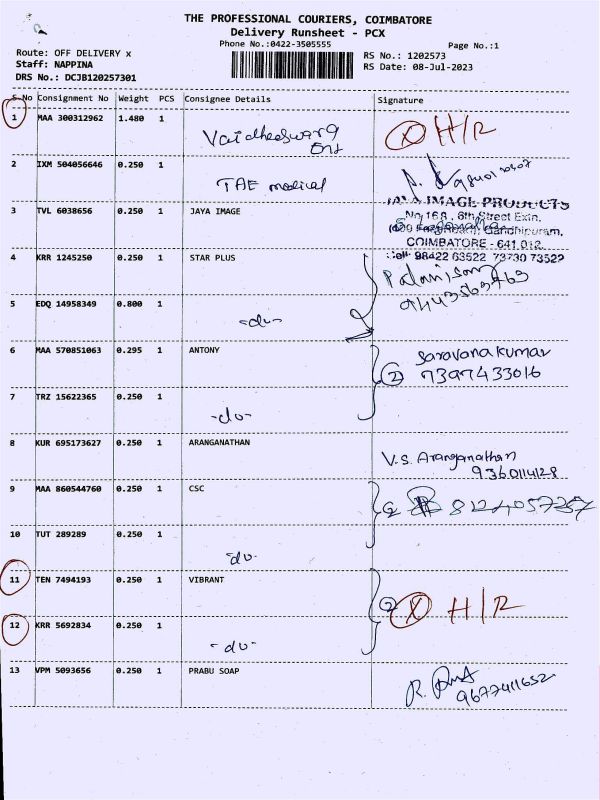 THE PROFESSIONAL COURIERS, COIMBATORE
Delivery Runsheet - PCX
Phone No.:0422-3505555
Page No.:1
Route: OFF DELIVERY x
Staff: NAPPINA
DRS No.: DCJB120257301
RS No.: 1202573
RS Date: 08-Jul-2023
S No Consignment No Weight PCS Consignee Details Signature
1 MAA 300312962 1.480 1 Vaidheeswara X H/R
2 IXM 504056646 0.250 1 TAE medical
3 TVL 6038656 0.250 1 JAYA IMAGE
JAYA IMAGE PRODUCTS
No 168, 8th Street Extn.
Gandhipuram,
COIMBATORE - 641 012.
Cell: 98422 63522 73730 73522
4 KRR 1245250 0.250 1 STAR PLUS Palanisamy
5 EDQ 14958349 0.800 1 -do- 2 9443563763
6 MAA 570851063 0.295 1 ANTONY 2 Saravanakumar
7397433016
7 TRZ 15622365 0.250 1 -do-
8 KUR 695173627 0.250 1 ARANGANATHAN V.S. Aranganathan
9360114128
9 MAA 860544760 0.250 1 CSC 2 8124057357
10 TUT 289289 0.250 1 -do-
11 TEN 7494193 0.250 1 VIBRANT 2 X H/R
12 KRR 5692834 0.250 1 -do-
13 VPM 5093656 0.250 1 PRABU SOAP R.
9677411652